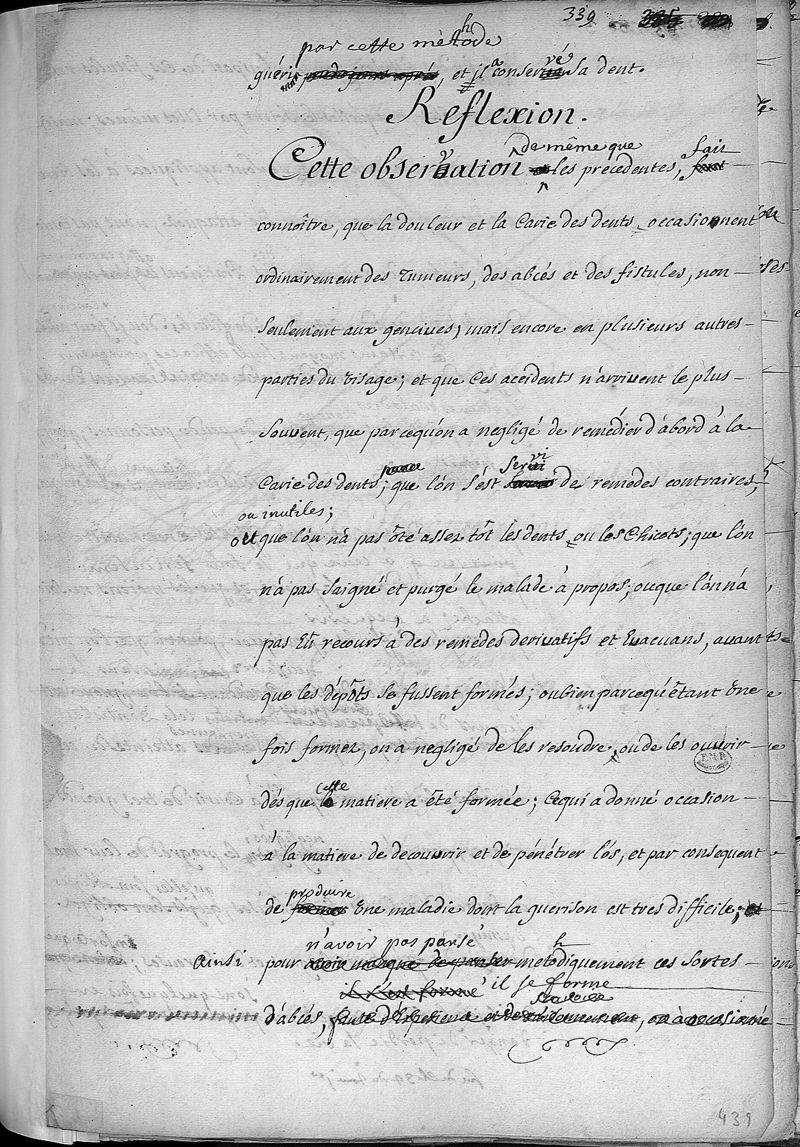 339
par cette méthode
guéri, et il a conservé sa dent.
Reflexion.
Cette observation de même que les précedentes, fait
connoître, que la douleur et la Carie des dents occasionnent
ordinairement des Tumeurs, des abcés et des fistules, non
seulement aux gencives, mais encore en plusieurs autres
parties du visage; et que ces accidents n'arrivent le plus
souvent, que parcequ'on a negligé de remédier d'abord à la
Carie des dents; que l'on s'est servi de remedes contraires,
ou inutiles;
ou que l'on n'a pas ôté assez tôt les dents ou les Chicots; que l'on
n'a pas saigné et purgé le malade à propos; ou que l'on n'a
pas Eû recours à des remedes derivatifs et Evacuans, avant
que les dépôts se fussent formés; ou bien parcequ'êtant Une
fois formez, on a negligé de les resoudre, ou de les ouvrir
dés que cette matiere a été formée; Ce qui a donné occasion
à la matiere de decouvrir et de pénétrer l'ôs, et par consequent
de produire Une maladie dont la guerison est tres difficile;
n'avoir pas pansé
Ainsi pour avoir manqué de panser methodiquement ces sortes
il s'est formé il se forme
d'abcés, faute d'Experience et de
439